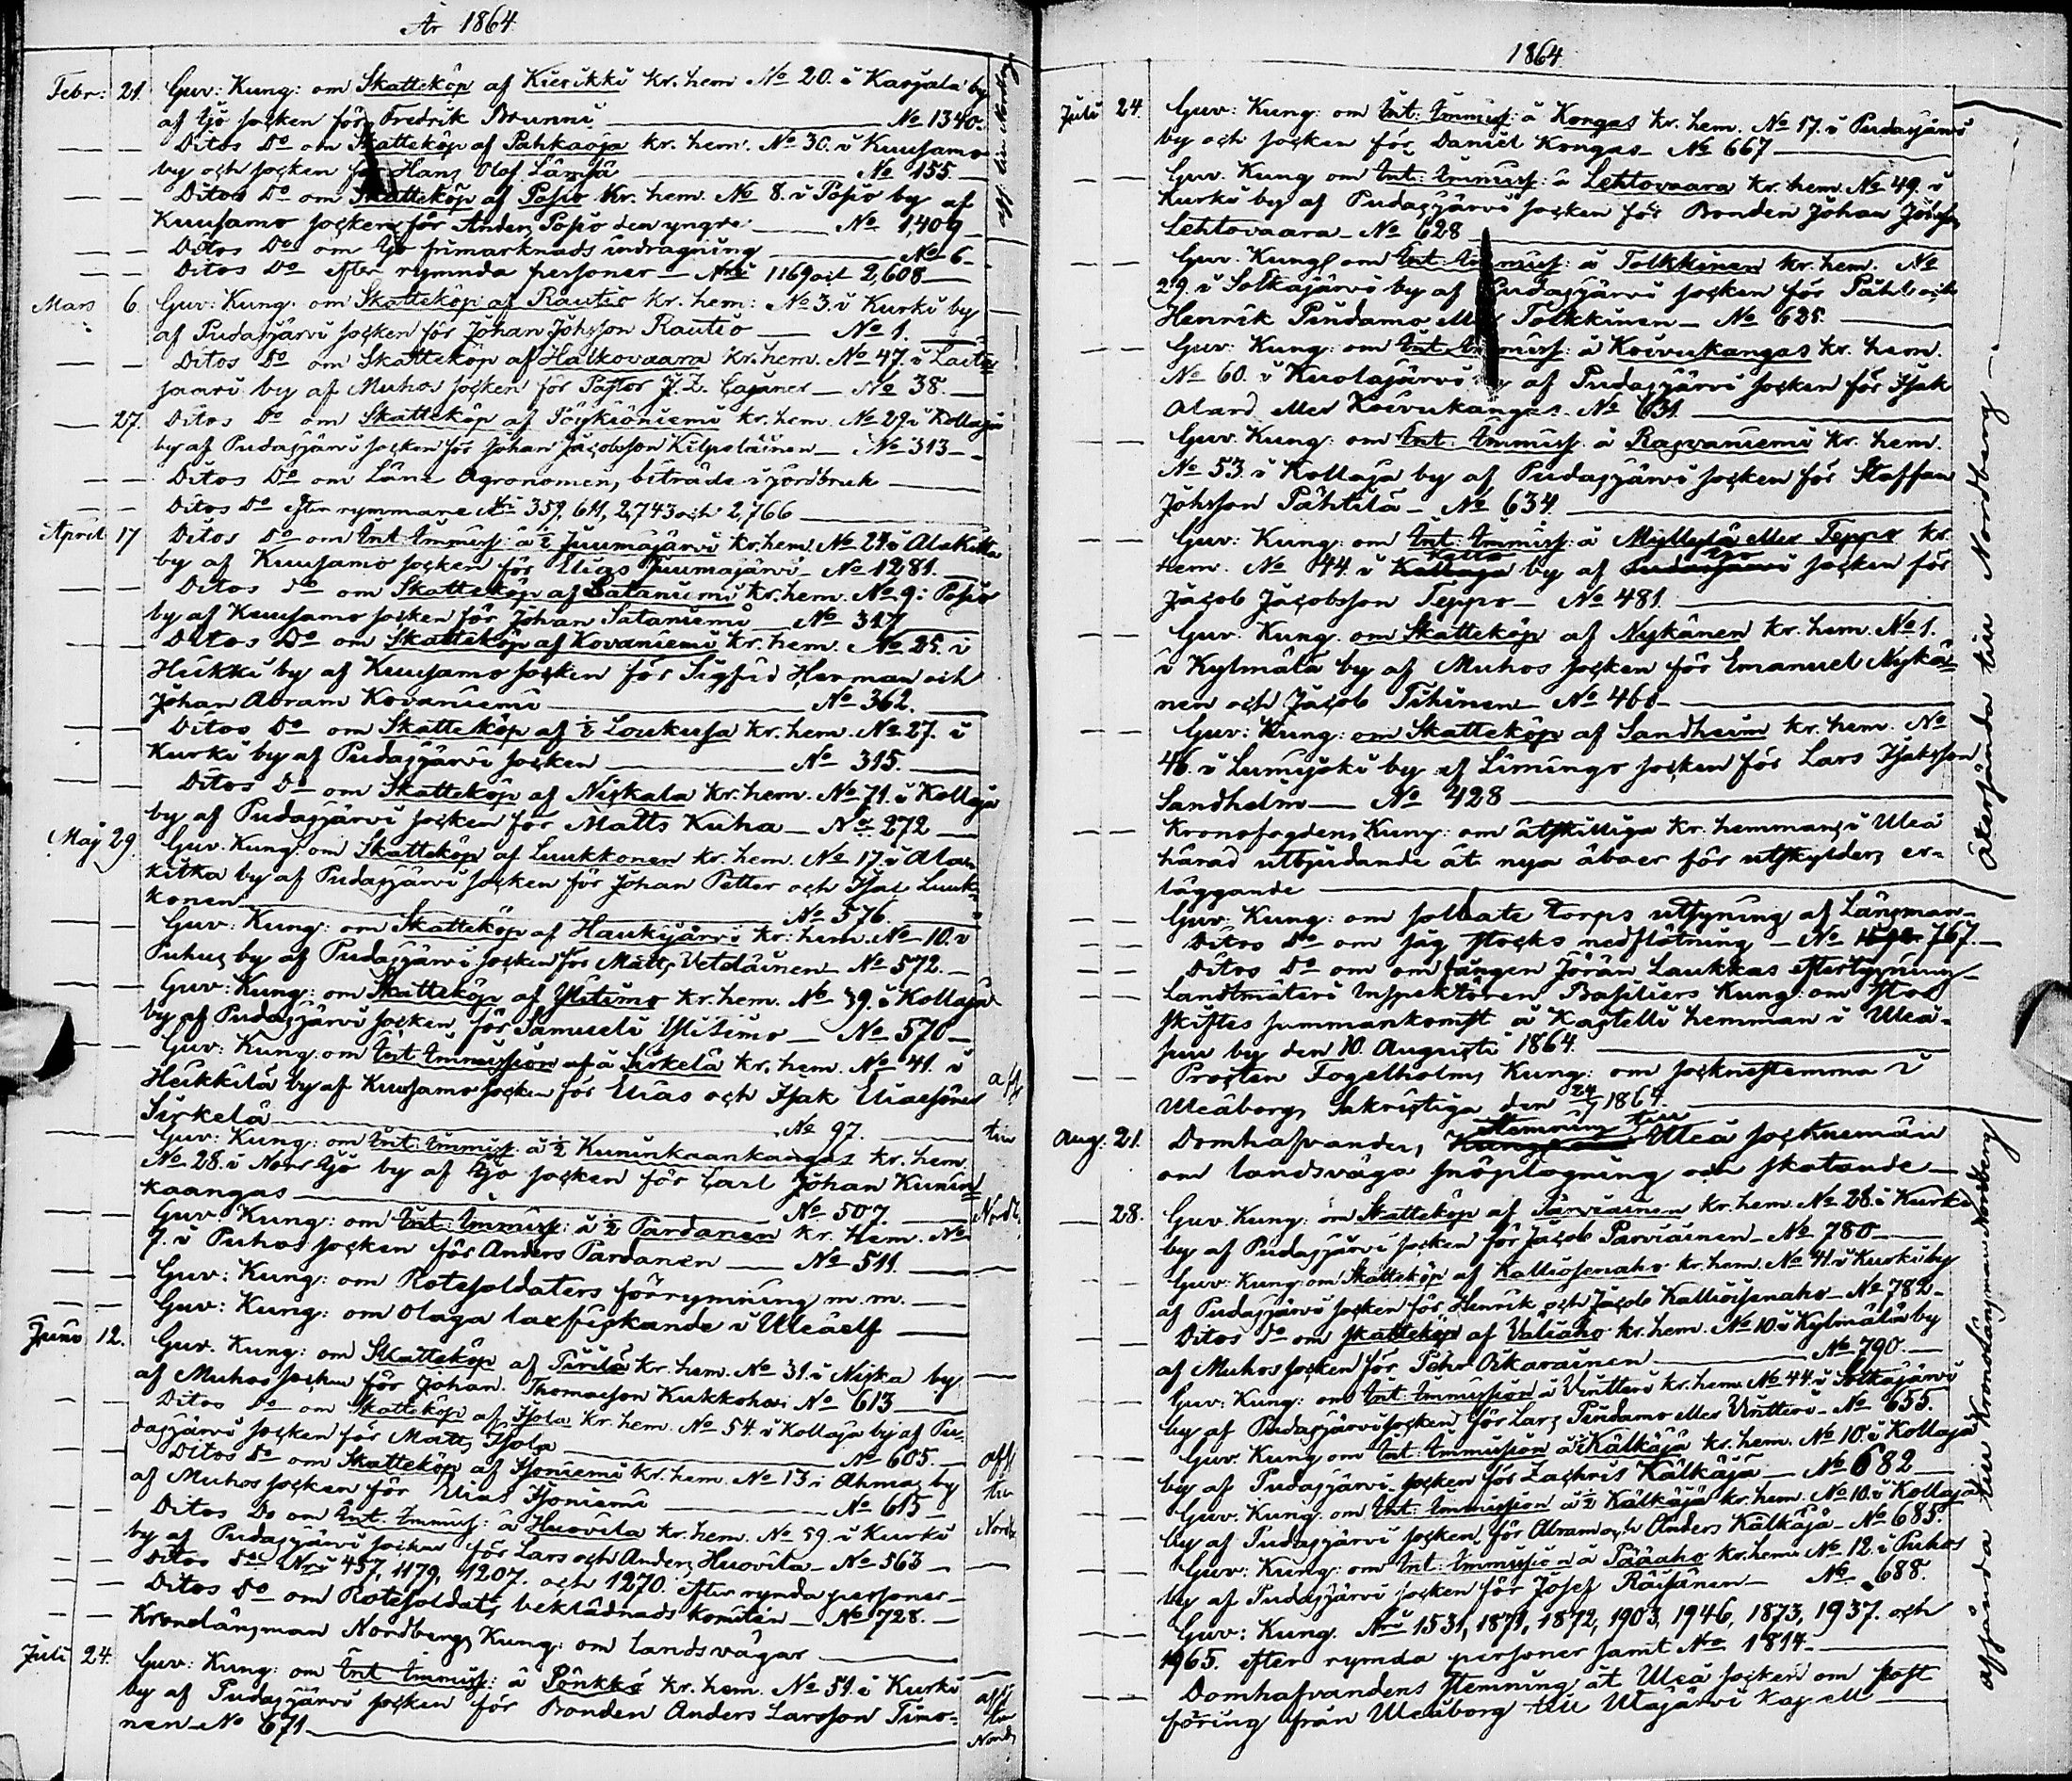 År 1864
Febr: 21. Guv: Kung: om Skatteköp af Kiesikki kr. hem No 20. i Karjala by
af Ijo socken för Fredrik Brunni No 1340.
Ditos Do om Skatteköp af Pahkaoja kr. hem. No 30. i Kuusamo
by och socken för Hans Olof Lämsä No 155
Ditos Do om Skatteköp af Posio kr. hem. No 8. i Posio by af
Kuusamo socken för Anders Posio den yngre No 1409
Ditos Do om Ijo frimarknads indragning No 6
Ditos Do efter rymnda personer Nris 1169 och 2,608
Mars 6. Guv: Kung. om Skatteköp af Rautio kr. hem: No 3. i Kurki by
af Pudasjärvi socken för Johan Johsson Rautio No 1.
Ditos Do om Skatteköp af Halkovaara kr. hem. No 47. i Laita
saari by af Muhos socken för Pastor J. Z. Cajaner No 38.
27. Ditos Do om Skatteköp af Pöykiöniemi kr. hem. No 29. i Kollaja
by af Pudasjärvi socken för Johan Jacobsson Kilpeläinen No 313
Ditos Do om Läns Agronomen, biträde i jordbruk
Ditos Do efter rymmare Nris 359, 611, 2,743 och 2,766
April 17 Ditos Do om Int: Immiss: å ½ Juumajärvi kr. hem. No 27. i Alakitka
by af Kuusamo socken för Elias Juumajärvi No 1281.
Ditos do om Skatteköp af Sataniemi kr. hem. No 9. i Posio
by af Kuusamo socken för Johan Sataniemi No 317
Ditos Do om Skatteköp af Kovaniemi kr. hem. No 25. i
Heikki by af Kuusamo socken för Sigfrid Herman och
Johan Abram Kovaniemi No 362.
Ditos Do om Skatteköp af ½ Loukusa kr. hem. No 27. i
Kurki by af Pudasjärvi socken No 315.
Ditos Do om Skatteköp af Niskala kr. hem. No 71. i Kollaja
by af Pudasjärvi socken för Matts Kuha No 272
Maj 29. Guv. Kung. om Skatteköp af Luukkonen kr. hem. No 17. i Ala
kitka by af Pudasjärvi socken för Johan Petter och Isac Luuk-
konen No 576.
Guv: Kung: om Skatteköp af Haukijärvi kr: hem. No 10. i
Puhus by af Pudasjärvi socken för Matts Veteläinen No 572.
Guv: Kung: om Skatteköp af Ylitimo kr. hem. No 39. i Kollaja
by af Pudasjärvi socken för Samueli Ylitimo No 570
Guv: Kung. om Int: Immission af å Sirkelä kr. hem. No 41. i
Heikkilä by af Kuusamo socken för Elias och Isak Eliassöner
Sirkelä No 97.
Guv: Kung: om Int: Immiss. å ½ Kuninkaankangas kr. hem.
No 28. i Norr Ijo by af Ijo socken för Carl Johan Kunin-
kaangas No 507.
Guv: Kung: om Int: Immiss: å ½ Pardanen kr. hem. No
7. i Puhos socken för Anders Pardanen No 511.
Guv: Kung: om Rotesoldaters förrymning m. m.
Guv: Kung: om Olaga laxfiskande i Uleåelf
Juni 12. Guv. Kung: om Skatteköp af Pirilä kr. hem. No 31. i Niska by
af Muhos socken för Johan Thomasson Kukkohai No 613
Ditos Do om Skatteköp af Isola kr. hem. No 54. i Kollaja by af Pu-
dasjärvi socken för Matts Isola No 605.
Ditos Do om Skatteköp af Isoniemi kr. hem. No 13 i Ahmas by
af Muhos socken för Elias Isoniemi No 615
Ditos Do om Int. Immiss: å Huovila kr. hem. No 59. i Kurki
by af Pudasjärvi socken för Lars och Anders Huovila No 563
Ditos do Nris 457, 1179, 1207. och 1270. efter rymda personer
Ditos Do om Rotesoldats beklädnads komiten No 728.
Kronolänsman Nordbergs Kung: om landsvägar
Juli 24. Guv: Kung: om Int Immiss: å Pönkkö kr. hem. No 51. i Kurki
by af Pudasjärvi socken för Bonden Anders Larsson Timo-
nen No 671
aff till Nordberg
aff
till
Nordb.
aff
till
Nordb.
aff
till
Nordb.
1864
Juli 24. Guv: Kung: om Int: Immiss: å Kongas kr. hem. No 17. i Pudasjärvi
by och socken för Daniel Kongas No 667
Guv. Kung om Int: Immiss: å Lehtovaara kr. hem. No 49. i
Kurki by af Pudasjärvi socken för Bonden Johan Johss.
Lehtovaara No 628
Guv. Kung om Int: Immiss: å Tolkkinen kr. hem. No
29. i Sotkajärvi by af Pudasjärvi socken för Påhl och
Henrik Pindamo eller Tolkkinen No 625.
Guv: Kung: om Int. Immiss: å Koivukangas kr. hem.
No 60. i Kuolajärvi by af Pudasjärvi socken för Isak
Alard eller Koivukangas No 631.
Guv: Kung: om Int: Immiss. å Rasvaniemi kr. hem.
No 53. i Kollaja by af Pudasjärvi socken för Staffan
Johsson Pähtilä No 634.
Guv: Kung: om Int: Immiss: å Myllylä eller Teppo kr.
hem. No 44. i Kollaja by af Pudasjärvi Ijo socken för
Jacob Jacobsson Teppo No 481.
Guv. Kung. om Skatteköp af Nykänen kr. hem. No 1.
i Kylmälä by af Muhos socken för Emanuel Nykä-
nen och Jacob Tihinen No 460
Guv: Kung: om Skatteköp af Sandheim kr. hem. No
46. i Lumijoki by af Limingo socken för Lars Isaksson
Sandholm No 428
Kronofogdens Kung: om åtskilliga kr. hemmans i Uleå
härad utbjudande åt nya åboer för utskylders er-
läggande
Guv: Kung: om soldate torps utsyning af Länsman
Ditos Do om såg stocks nedflötning No 767.
Ditos Do om om fången Jöran Laukkas efterlysning
Landtmäteri Inspektören Basiliers Kung: om Stor
skiftes sammankomst å Kastelli hemman i Uleå-
suu by den 10. Augusti 1864.
Prosten Fogelholms Kung: om sockenstemma i
Uleåborgs Sakristiga den 24/7 1864.
Aug. 21. Domhafvandes Stemning till Uleå sockenmän
om landsväga snöplogning och skotande
28. Guv. Kung: om Skatteköp af Parviainen kr. hem. No 28. i Kurki
by af Pudasjärvi socken för Jacob Parviainen No 780
Guv: Kung: om Skatteköp af Kalliosenaho kr. hem. No 41. i Kurki by
af Pudasjärvi socken för Henrik och Jacob Kalliosenaho No 782
Ditos do om Skatteköp af Valiaho kr. hem. No 10. i Kylmälä by
af Muhos socken för Pehr Oikarainen No 790.
Guv: Kung: om Int: Immission å Vinttiri kr. hem. No 44. i Sotkajärvi
by af Pudasjärvi socken för Lars Pindamo eller Vinttiri No 655.
Guv. Kung om Int: Immission å ½ Kälkäjä kr. hem. No 10. i Kollaja
by af Pudasjärvi socken för Zachris Kälkäjä No 682
Guv. Kung. om Int: Immission å ½ Kälkäjä kr. hem. No 10. i Kollaja
by af Pudasjärvi socken för Abram och Anders Kälkäjä No 685.
Guv: Kung: om Int: Immission å Pääaho kr. hem. No 12. i Puhos
by af Pudasjärvi socken för Josef Räisänen No 688.
Guv: Kung. Nris 1531, 1871, 1872, 1903, 1946, 1873, 1937. och
1965. efter rymda personer samt Nro 1814.
Domhafvandens stemning åt Uleå socken om post
föring från Uleåborg till Utajärvi kapell
återsända till Nordberg
afsända till Kronolänsman Nordberg